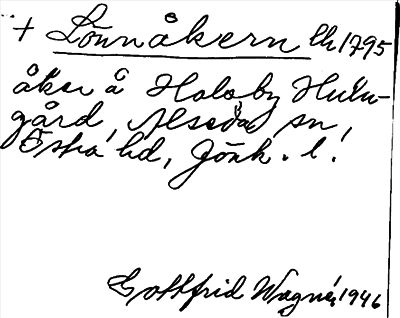 + Lönnåkern lh 1795
åker å Holsby Hult-
gård, Alseda sn,
Östra hd, Jönk. l.
Gottfrid Wagnér, 1946